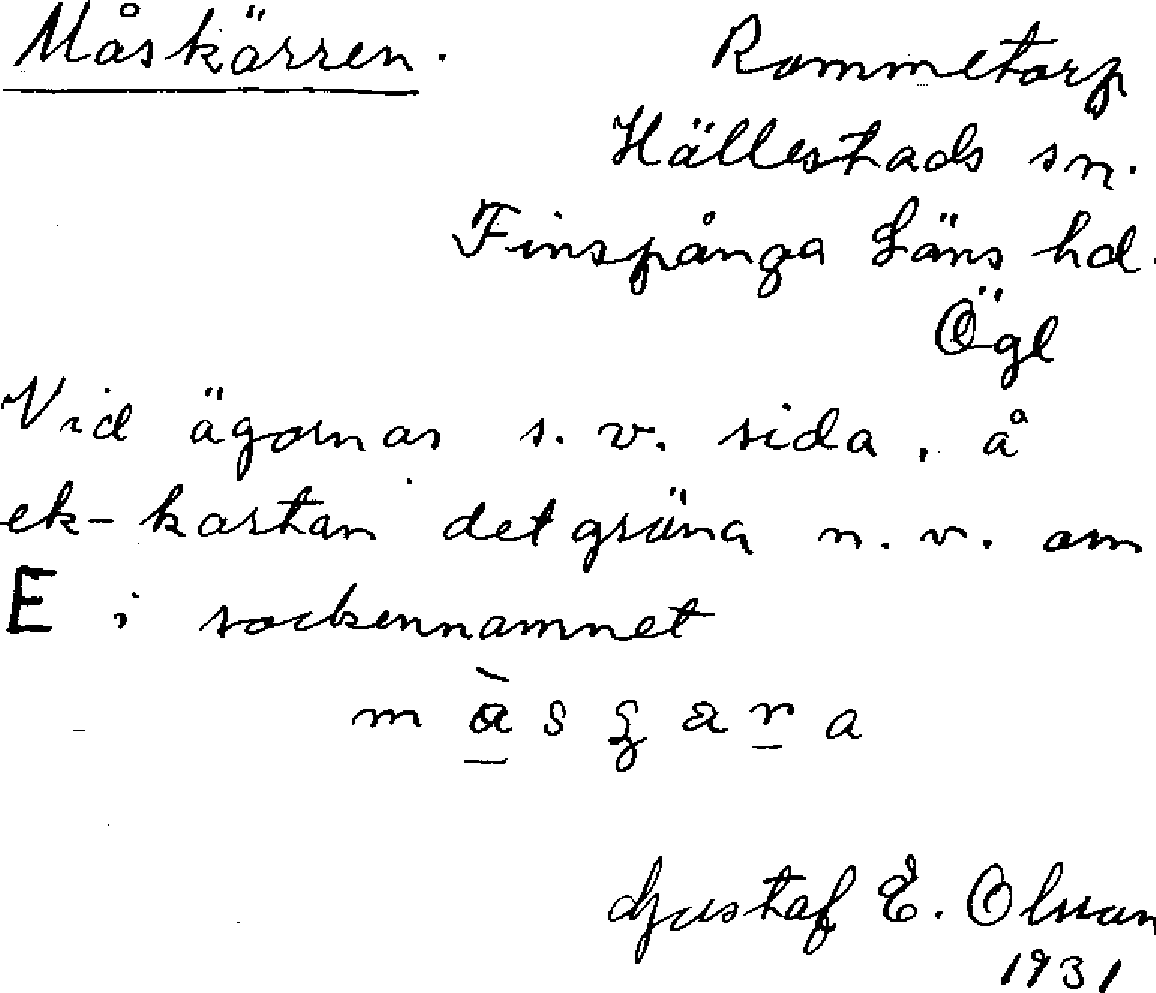 Måskärren. Rommetorp
Hällestads sn.
Finspånga Läns hd.
Ögl
Vid ägornas s. v. sida, å
ek-kartan det gröna n. v. om
E i sockennamnet
Gustaf E. Olsson
1931